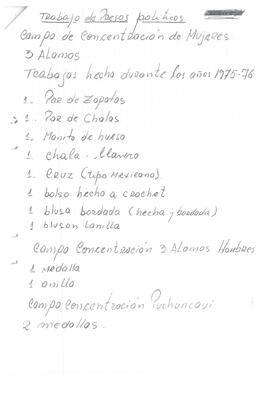 Trabajo de Presos politicos
Campo de Concentración de Mujeres
3 Alamos
Trabajos hecho durante los años 1975-76
1. Par de Zapatos
1. Par de Chalas
1. Manito de hueso
1. chala - llavero
1. Cruz (tipo Mexicano)
1 bolso hecho a crochet
1 blusa bordada (hecha y bordada)
1 bluson lanilla
Campo Concentración 3 Alamos Hombres
1 medalla
1 anillo
Campo Concentración Puchuncavi
2 medallas.